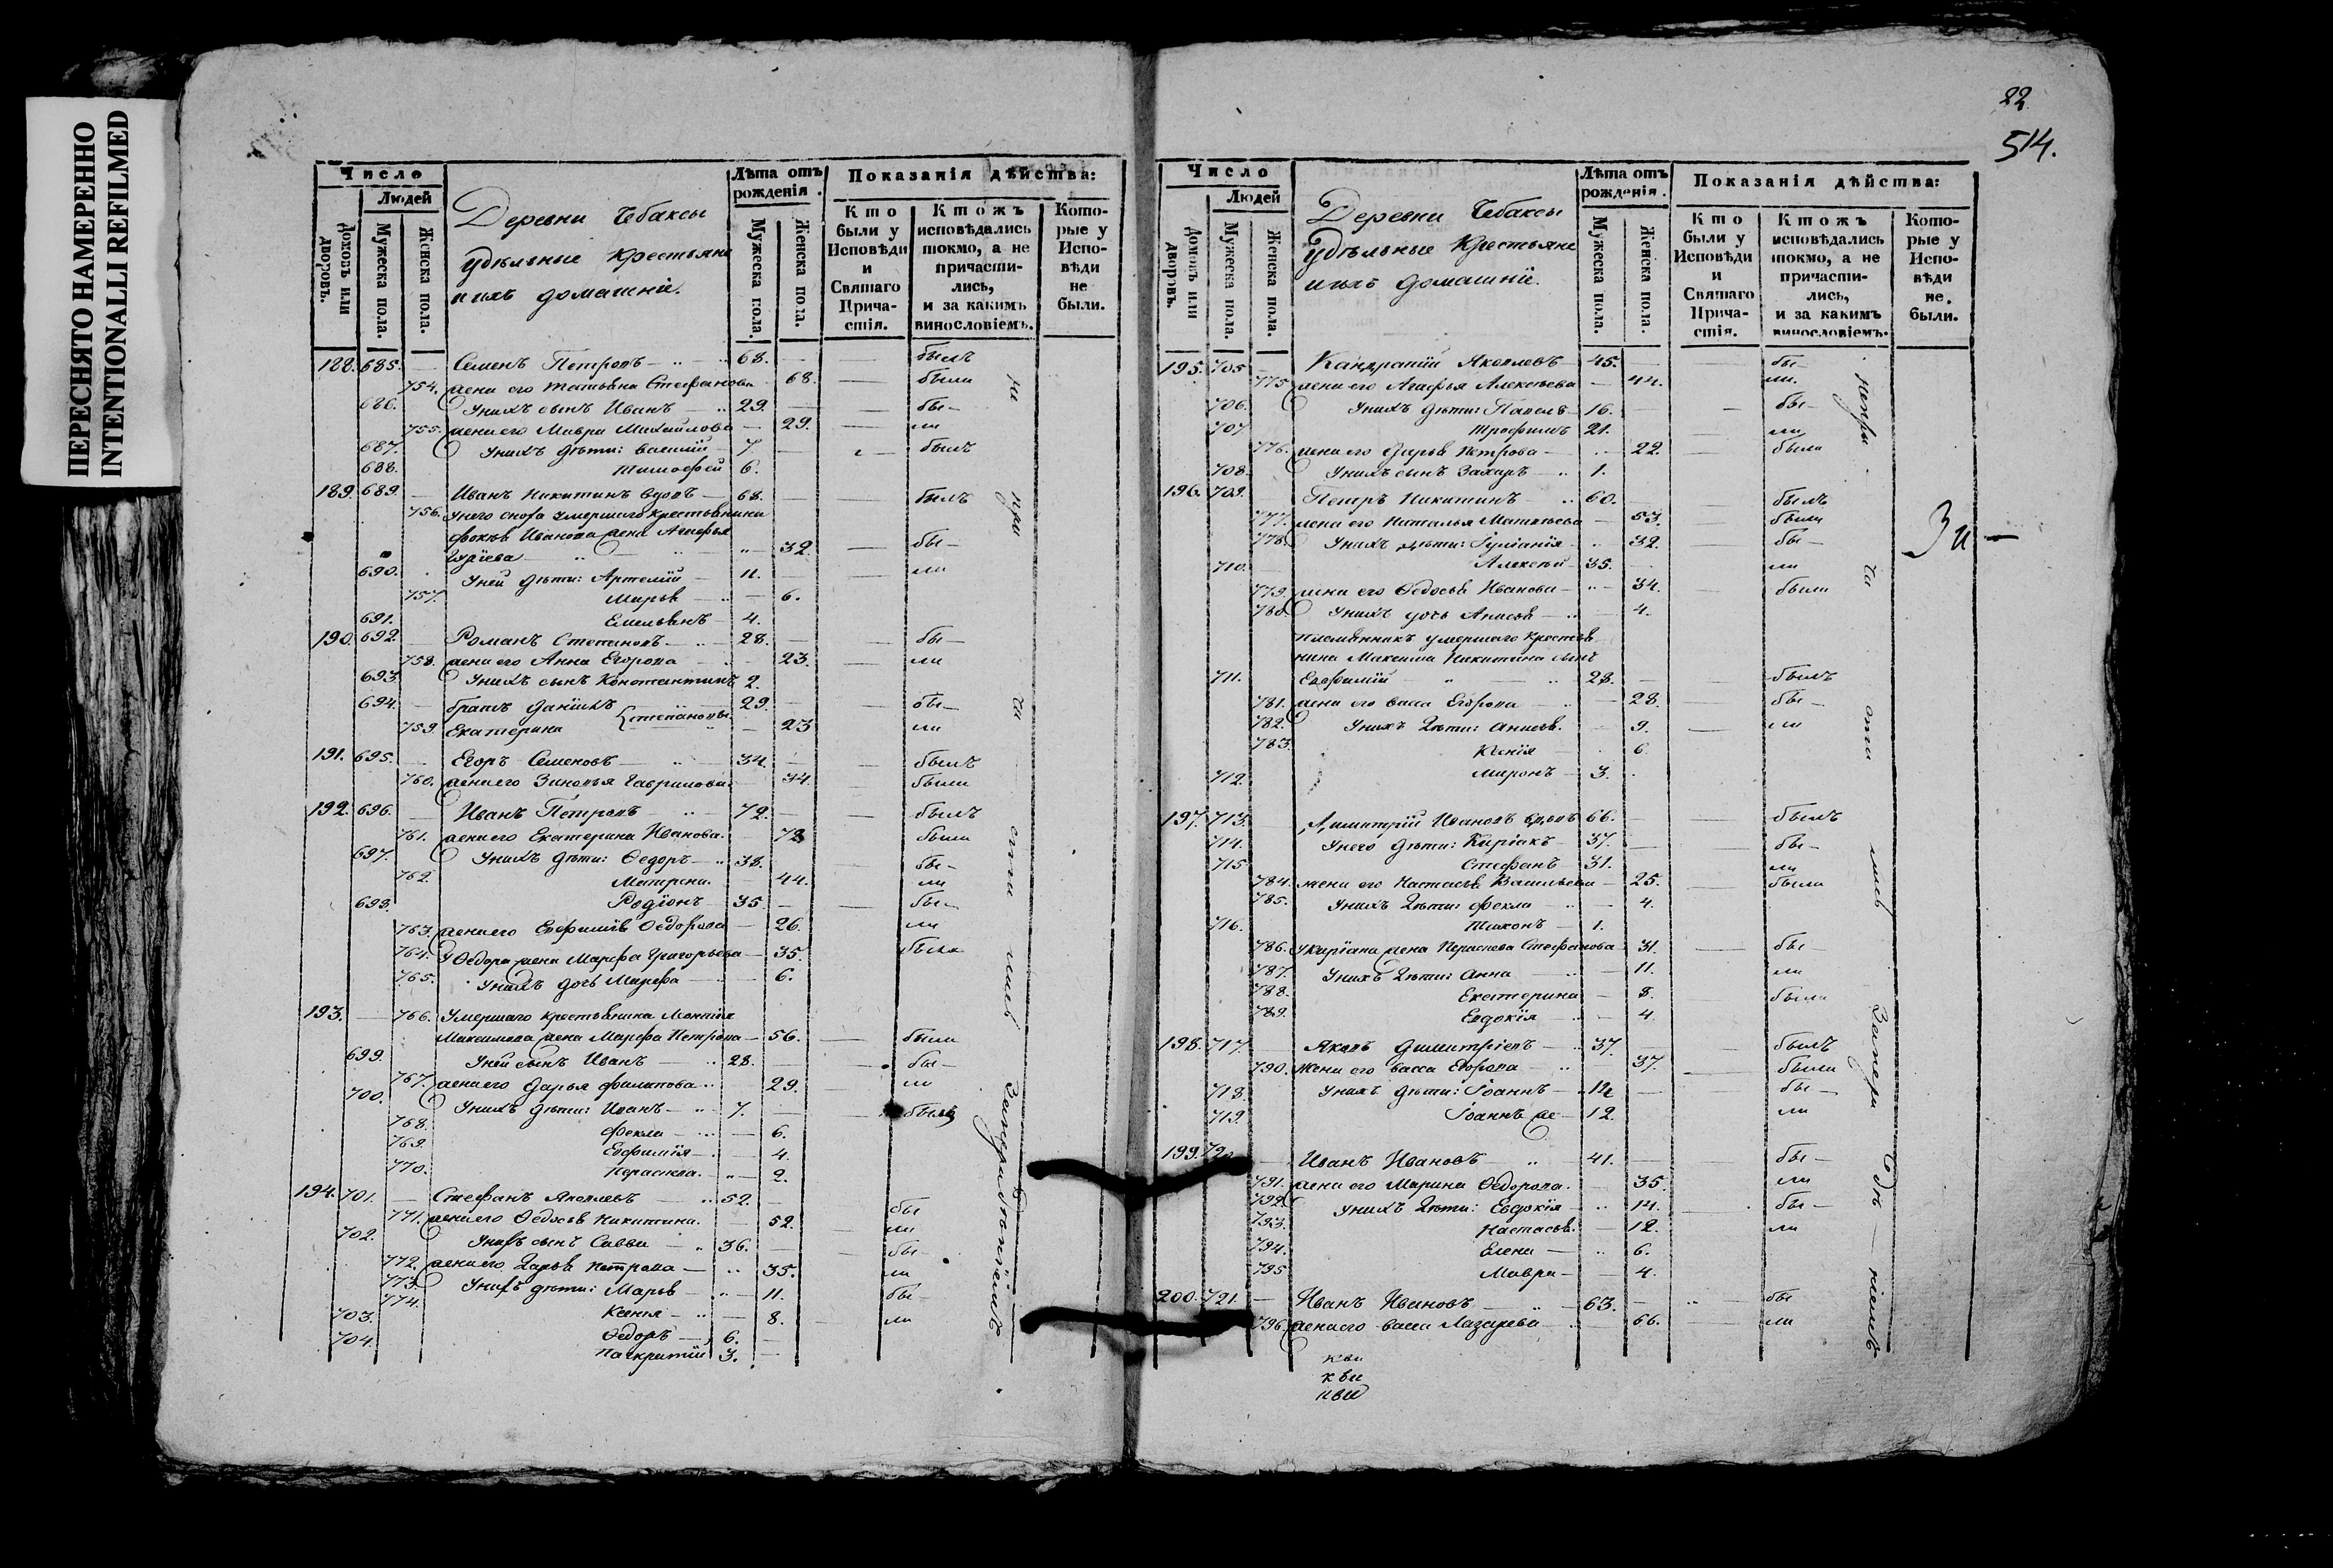 ПЕРЕСНЯТО НАМЕРЕННО
INTENTIONALLI REFILMED
22
514.
Число
Людей
Домовъ или дворовъ.
Мужеска пола.
Женска пола.
Деревни Чебаксы
удѣльные крестьяне
и ихъ домашніе.
Лѣта отъ рожденія.
Мужеска пола.
Женска пола.
Показанія дѣйства:
Кто были у Исповѣди и Святаго Причастія.
Ктожъ исповѣдались токмо, а не причастились, и за какимъ винословіемъ.
Которые у Исповѣди не были.
188. 685. Семенъ Петровъ 68. былъ
754. жена его Татьяна Стефанова 68. была
686. У нихъ сынъ Иванъ 29. бы-
755. жена его Мавра Михайлова 29. ли
687. У нихъ дѣти: Василій 7. былъ
688. Тимофей 6.
189. 689. Иванъ Никитинъ вдовъ 68. былъ
756. У него сноха умершаго крестьянина
Иванова жена Агафья
32. бы-
690. У ней дѣти: Артемій 11. ли
757. Марья 6.
691. Емельянъ 4.
190. 692. Романъ Степановъ 28. бы-
758. жена его Анна Егорова 23. ли
693. У нихъ сынъ Константинъ 2.
694. братъ Даніилъ 29. бы-
Степановы
759. Екатерина 23 ли
191. 695. Егоръ Семеновъ 34. былъ
760. жена его Зиновья Гаврилова 34. была
192. 696. Иванъ Петровъ 72. былъ
761. жена его Екатерина Иванова. 78 была
697. У нихъ дѣти: Ѳедоръ 38. бы-
762. Матрена. 44. ли
698. Родіонъ 35 бы-
763. жена его Евфимія Ѳедорова 26. ли
764. У Ѳедора жена Марфа Григорьева 35. была
765. У нихъ дочь Марфа 6.
193. 766. Умершаго крестьянина
Максимова жена Марфа Петрова 56. была
699. У ней сынъ Иванъ 28. бы-
767. жена его Дарья Филипова 29. ли
700. У нихъ дѣти: Иванъ 7. былъ
768. Фекла 6.
769. Евфимія 4.
770. Параскева. 2.
194. 701. Стефанъ Яковлевъ 52. бы
771. жена его Ѳедосья Никитина. 52. ли
702. У нихъ сынъ Савва 36. бы-
772. жена его Дарья Петрова 35. ли
773. У нихъ дѣти: Марья 11. бы-
774. Ксенія 8. ли
703. Ѳедоръ 6.
704. Панкратій 3.
не при ча сти лись За нерадѣніемъ
Число
Людей
Домовъ или дворовъ.
Мужеска пола.
Женска пола.
Деревни Чебаксы
Удѣльные Крестьяне
и ихъ домашніе.
Лѣта отъ рожденія.
Мужеска пола.
Женска пола.
Показанія дѣйства:
Кто были у Исповѣди и Святаго Причастія.
Ктожъ исповѣдались токмо, а не причастились, и за какимъ винословіемъ.
Которые у Исповѣди не были.
195. 705 Кандратій Яковлевъ 45. бы-
775. жена его Агафья Алексѣева 44. ли.
706. У нихъ дѣти: Павелъ 16. бы-
707. Трофимъ 21. ли
776. жена его Дарья Петрова 22. была
708. У нихъ сынъ Захаръ 1.
196. 709. Петръ Никитинъ 60. былъ
777. жена его Наталья Матвѣева 53. была
778. У нихъ дѣти: Іуліанія 32. бы-
710. Алексѣй 35. ли
779. жена его Ѳедосья Иванова 34. была
780. У нихъ дочь Анисья 4.
племянникъ умершаго крестья-
нина Максима Никитина сынъ
711. Евфимій 28. былъ
781. жена его Васса Егорова 28. бы-
782. У нихъ дѣти: Анисья. 9. ли
783. Ксенія 6
712. Миронъ 3.
197. 713. Димитрій Ивановъ вдовъ 66. былъ
714. У него дѣти: Киріакъ 37. бы-
715 Стефанъ 31. ли
784. жена его Настасья Васильева 25. была
785. У нихъ дѣти: Фекла 4.
716. Тихонъ 1.
786. У жена Параскева Стефанова 31. бы-
787. У нихъ дѣти: Анна 11. ли
788. Екатерина 8. была
789. Евдокія 4
198. 717. Яковъ Димитріевъ 37. былъ
790. Жена его Васса Егорова 37. была
718. У нихъ дѣти: Іоаннъ 14 бы-
719. Іоаннъ же 12. ли
199. 720 Иванъ Ивановъ 41. бы-
791. жена его Марина Ѳедорова. 35. ли
792. У нихъ дѣти: Евдокія 14. бы-
793. Настасья. 12. ли
794. Елена 6.
795 Мавра 4.
200. 721. Иванъ Ивановъ 63. бы
796. жена его Васса Лазарева 66. ли
не при ча сти лись За нера дѣ ніемъ